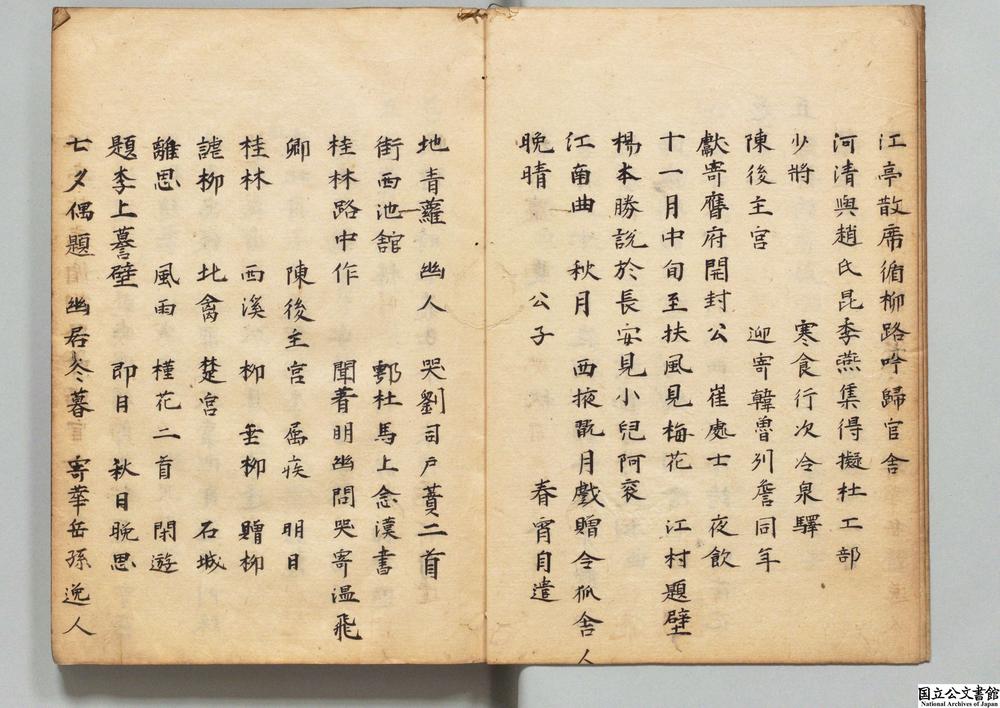 江亭散席循柳路吟歸官舎
河清與趙氏昆季燕集得擬杜工部
少將 寒食行次冷泉驛
陳後主宮 迎寄韓魯州詹同年
獻寄舊府開封公 崔處士 夜飲
十一月中旬至扶風見梅花 江村題壁
楊本勝說於長安見小兒阿衮
江南曲 秋月 西掖翫月戲贈令狐舎人
晚晴 公子 春宵自遣
地青蘿 幽人 哭劉司戸蕡二首
街西池舘 鄠杜馬上念漢書
桂林路中作 聞著明幽問哭寄温飛
卿 陳後主宮 屬疾 明日
桂林 西溪 柳 垂柳 贈柳
謔柳 北禽 楚宮 石城
離思 風雨 槿花二首 閑遊
題李上謩壁 即日 秋日晩思
七夕偶題 幽居冬暮 寄華岳孫逸人
国立公文書館
National Archives of Japan